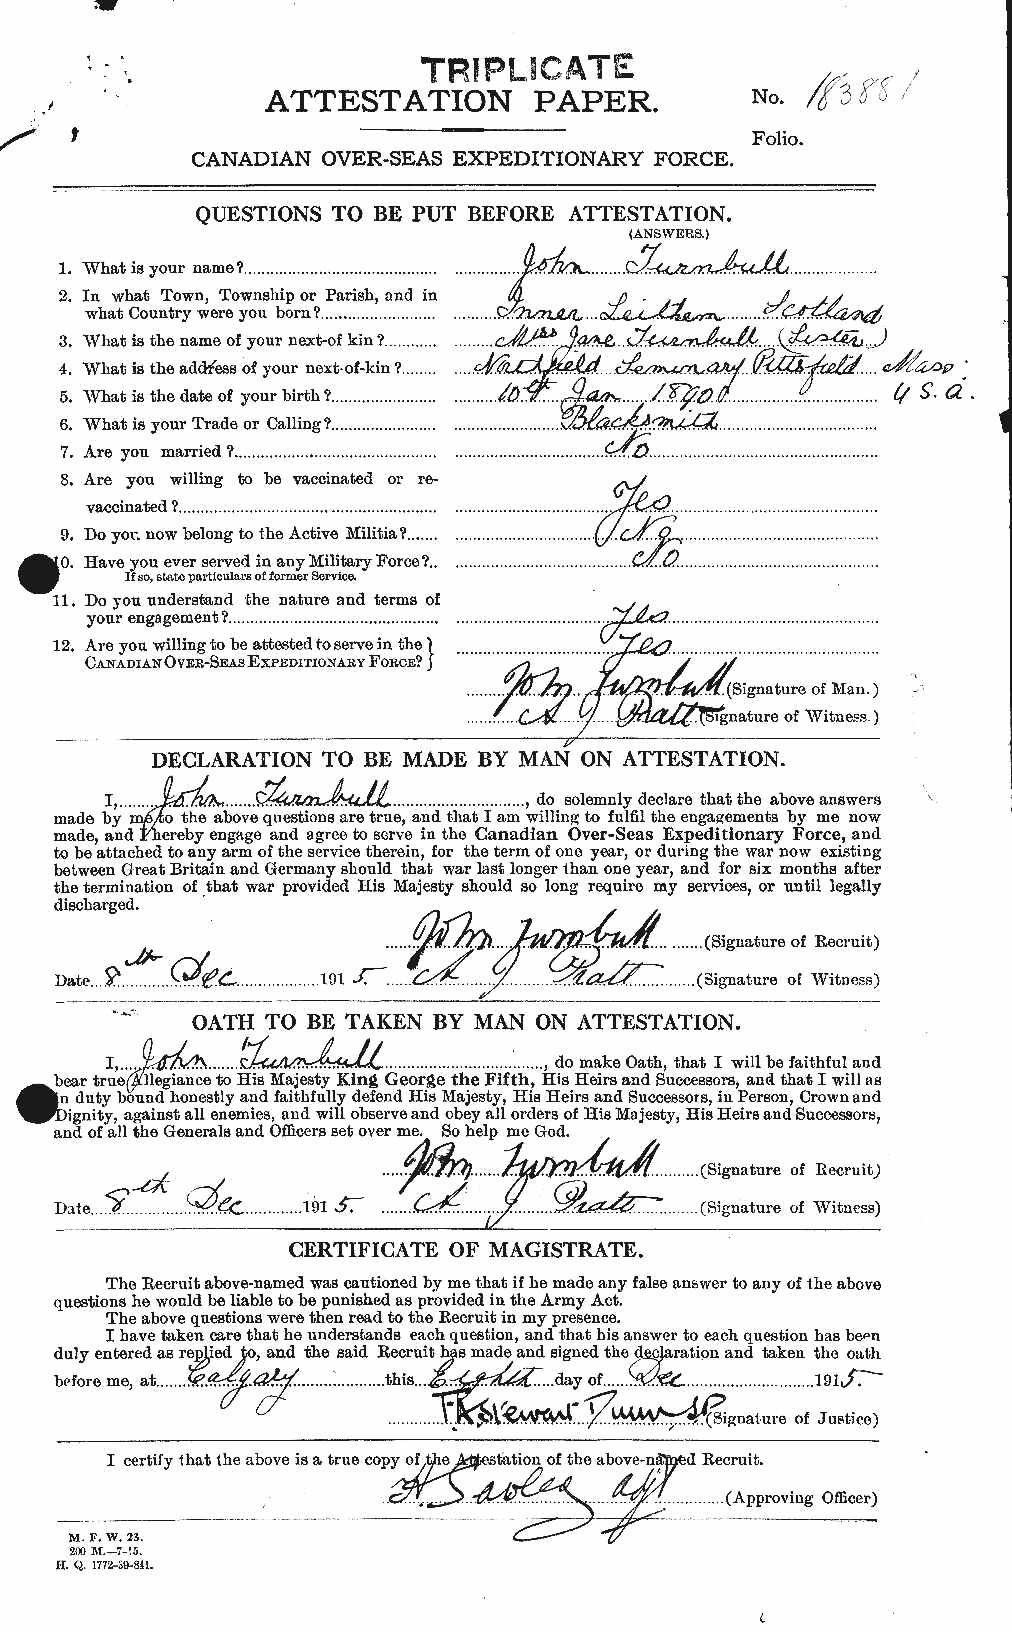 TRIPLICATE
ATTESTATION PAPER.
No. 183881
Folio.
CANADIAN OVER-SEAS EXPEDITIONARY FORCE.
QUESTIONS TO BE PUT BEFORE ATTESTATION.
(ANSWERS.)
1. What is your name? John Turnbull
2. In what Town, Township or Parish, and in
what Country were you born? Inner Leithem Scotland
3. What is the name of your next-of kin? Miss Jane Turnbull (Sister)
4. What is the address of your next-of-kin? Northfield Semenary Pittsfield Mass.
5. What is the date of your birth? 10th Jan 1890 U.S.A.
6. What is your Trade or Calling? Blacksmith
7. Are you married? No
8. Are you willing to be vaccinated or re-
vaccinated? Yes
9. Do you now belong to the Active Militia? No
10. Have you ever served in any Military Force? No
If so, state particulars of former Service.
11. Do you understand the nature and terms of
your engagement? Yes
12. Are you willing to be attested to serve in the
CANADIAN OVER-SEAS EXPEDITIONARY FORCE? } Yes
John Turnbull (Signature of Man.)
A J Pratt (Signature of Witness.)
DECLARATION TO BE MADE BY MAN ON ATTESTATION.
I, John Turnbull, do solemnly declare that the above answers
made by me to the above questions are true, and that I am willing to fulfil the engagements by me now
made, and I hereby engage and agree to serve in the Canadian Over-Seas Expeditionary Force, and
to be attached to any arm of the service therein, for the term of one year, or during the war now existing
between Great Britain and Germany should that war last longer than one year, and for six months after
the termination of that war provided His Majesty should so long require my services, or until legally
discharged.
John Turnbull (Signature of Recruit)
Date 8th Dec 1915. A J Pratt (Signature of Witness)
OATH TO BE TAKEN BY MAN ON ATTESTATION.
I, John Turnbull, do make Oath, that I will be faithful and
bear true Allegiance to His Majesty King George the Fifth, His Heirs and Successors, and that I will as
in duty bound honestly and faithfully defend His Majesty, His Heirs and Successors, in Person, Crown and
Dignity, against all enemies, and will observe and obey all orders of His Majesty, His Heirs and Successors,
and of all the Generals and Officers set over me. So help me God.
John Turnbull (Signature of Recruit)
Date 8th Dec 1915. A J Pratt (Signature of Witness)
CERTIFICATE OF MAGISTRATE.
The Recruit above-named was cautioned by me that if he made any false answer to any of the above
questions he would be liable to be punished as provided in the Army Act.
The above questions were then read to the Recruit in my presence.
I have taken care that he understands each question, and that his answer to each question has been
duly entered as replied to, and the said Recruit has made and signed the declaration and taken the oath
before me, at Calgary this Eighth day of Dec 1915.
Stewart Dunn JP (Signature of Justice)
I certify that the above is a true copy of the Attestation of the above-named Recruit.
Adjt (Approving Officer)
M. F. W. 23.
200 M.—7-15.
H. Q. 1772-39-841.